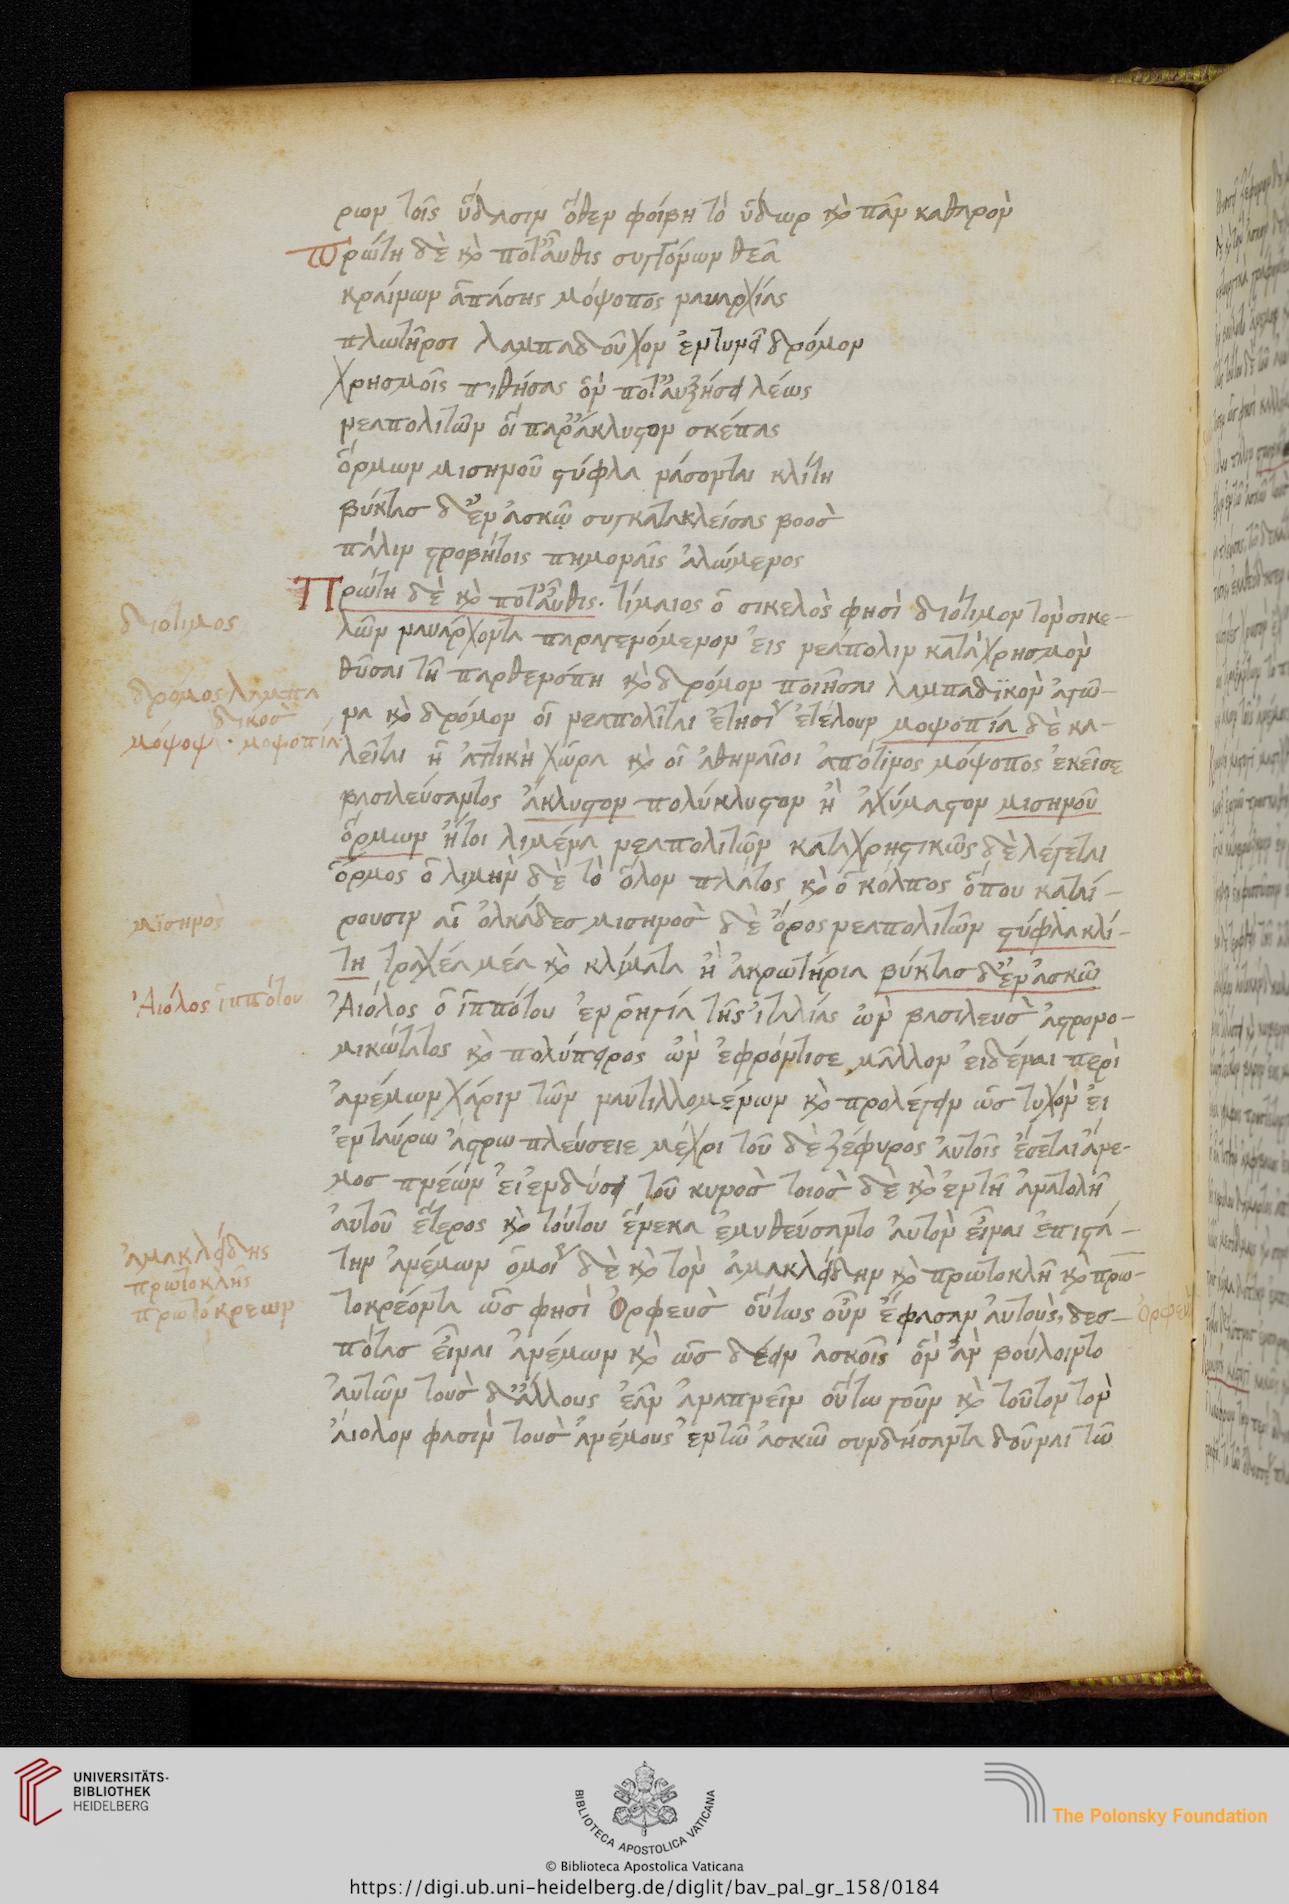 ρων τοῖς ὕδασιν ὅθεν φοίβη τὸ ὕδωρ κὶ πᾶν καθαρὸν
Πρώτη δὲ κὶ ποτ' αὖθις συγγόνων θεᾶ
κραίνων ἁπάσης μόψοπος ναυαρχίας
πλωτῆρσι λαμπαδοῦχον ἐντυνεῖ δρόμον
χρησμοῖς πιθήσας ὅν ποτ' αὐξήσει λέως
νεαπολιτῶν οἳ παρ' ἄκλυστον σκέπας
ὅρμων μισηνοῦ στύφλα νάσονται κλίτη
βύκτας δ' ἐν ἀσκῷ συγκατακλείσας βοὸς
πάλιν στροβήτοις πημοναῖς ἀλώμενος
Πρώτη δὲ κὶ ποτ' αὖθις. τίμαιος ὁ σικελὸς φησὶ διότιμον τὸν σικε-
διότιμος
λῶν ναυάρχοντα παραγενόμενον εἰς νεάπολιν κατὰ χρησμὸν
θῦσαι τῆ παρθενόπη κὶ δρόμον ποιῆσαι λαμπαδϊκὸν ἀγῶ-
δρόμος λαμπα
δικος
να κὶ δρόμον οἱ νεαπολῖται ἐτησί ἐτέλουν μοψοπία δὲ κα-
μόψοψ · μοψοπία
λεῖται ἡ ἀττικὴ χώρα κὶ οἱ ἀθηναῖοι ἀπό τινος μόψοπος ἐκεῖσε
βασιλεύσαντος ἄκλυστον πολύκλυστον ἢ ἀχύμαστον μισηνοῦ
ὅρμων ἤτοι λιμένα νεαπολιτῶν καταχρηστικῶς δὲ λέγεται
ὅρμος ὁ λιμὴν δὲ τὸ ὅλον πλάτος κὶ ὁ κόλπος ὅπου καταί-
ρουσιν αἱ ὁλκάδες μισηνὸς δὲ ὄρος νεαπολιτῶν στύφλα κλί-
μϊσηνος
τη τραχέα μέα κὶ κλίματα ἢ ἀκρωτήρια βύκτας δ' ἐν ἀσκῶ
Ἀιόλος ὁ ἱππότου ἐν ῥηγία τῆς ἰταλίας ὢν βασιλεὺς ἀστρονο-
Ἀιόλος ἱππότου
μικώτατος κὶ πολύπειρος ὢν ἐφρόντισε μᾶλλον εἰδέναι περὶ
ἀνέμων χάριν τῶν ναυτιλλομένων κὶ προλέγειν ὡς τυχὸν εἰ
ἐν ταύρω ἄστρω πλεύσειε μέχρι τοῦ δὲ ζέφυρος αὐτοῖς ἔσεται ἄνε-
μος πνέων εἰ ἐν δύσει τοῦ κυνὸς τοιὸς δὲ κὶ ἐν τῆ ἀνατολῆ
αὐτοῦ ἕτερος κὶ τούτου ἕνεκα ἐμυθεύσαντο αὐτὸν εἶναι ἐπιστά-
την ἀνέμων ὁμοί δὲ κὶ τὸν ἀμακλείδην κὶ πρωτοκλῆ κὶ πρω-
ἀμακλείδης
πρωτοκλῆς
πρωτόκρεων
τοκρέοντα ὡς φησὶ Ὀρφεὺς οὕτως οὖν ἔφασαν αὐτοὺς, δεσ-
Ὀρφεὺς
πότας εἶναι ἀνέμων κὶ ὡς δέειν ἀσκοῖς ὃν ἂν βούλοιντο
αὐτῶν τοὺς δ' ἄλλους ἐᾶν ἀναπνεῖν οὕτω γοῦν κὶ τοῦτον τὸν
ἀίολον φασὶν τοὺς ἀνέμους ἐν τῶ ἀσκῶ συνδήσαντα δοῦναι τῶ
UNIVERSITÄTS-
BIBLIOTHEK
HEIDELBERG
BIBLIOTECA APOSTOLICA VATICANA
The Polonsky Foundation
© Biblioteca Apostolica Vaticana
https://digi.ub.uni-heidelberg.de/diglit/bav_pal_gr_158/0184